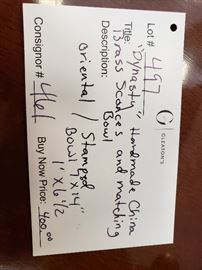 Lot # 497
G
GLEATON'S
Title: "Dynasty" Handmade China
Brass Sconces and matching
Description: Bowl
Oriental / Stamped
Bowl 4 x 14"
1' x 6 1/2
Consignor # 461
Buy Now Price: 400.00